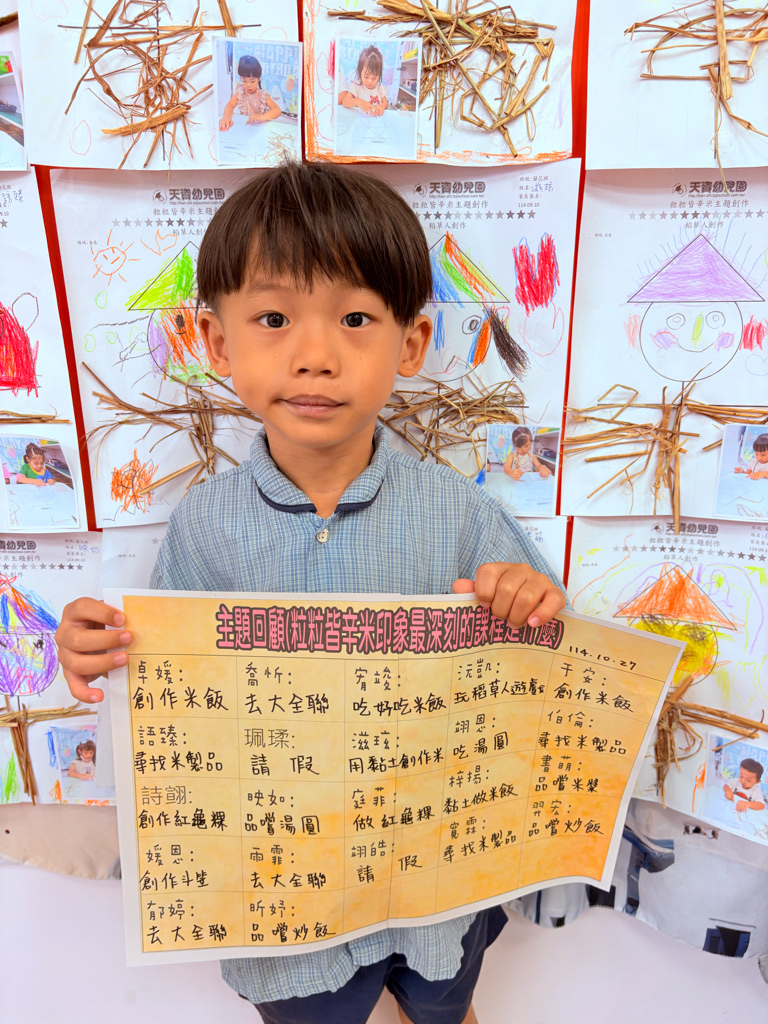 天資幼兒園
粒粒皆辛米主題創作
稻草人創作
114.09.10
天資幼兒園
粒粒皆辛米主題創作
稻草人創作
114.09.10
天資幼兒園
粒粒皆辛米主題創作
稻草人創作
天資幼兒園
114.09.10
天資幼兒園
主題回顧(粒粒皆辛米印象最深刻的課程是什麼)
114.10.27
卓媛:
創作米飯
喬忻:
去大全聯
宥竣:
吃好吃米飯
沅凱:
玩稻草人遊戲
于安:
創作米飯
語臻:
尋找米製品
珮瑈:
請 假
滋玹:
用黏土創作米
翊恩:
吃湯圓
伯倫:
尋找米製品
詩翮:
創作紅龜粿
映如:
品嚐湯圓
庭菲:
做紅龜粿
梓揚:
黏土做米飯
書萌:
品嚐米漿
媛恩:
創作斗笠
雨霏:
去大全聯
翊皓:
請 假
寬霖:
尋找米製品
羿宏:
品嚐炒飯
郁婷:
去大全聯
昕妤:
品嚐炒飯